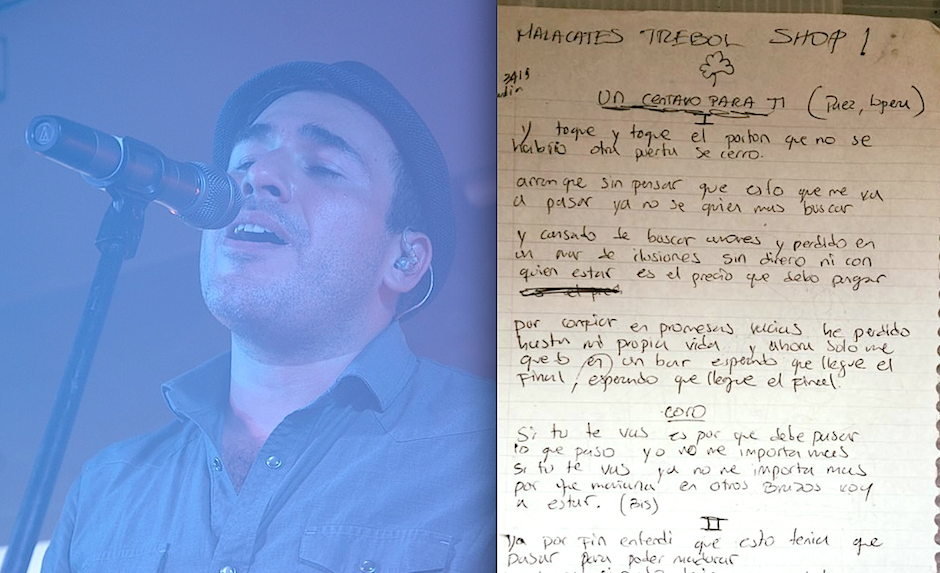 MALACATES TREBOL SHOP!
UN CENTAVO PARA TI (Paez, Lopera)
I
y toque y toque el porton que no se
habrio otra puerta se cerro.
arranque sin pensar que esto que me va
a pasar ya no se quien mas buscar
y cansado de buscar amores y perdido en
un mar de ilusiones sin dinero ni con
quien estar es el precio que debo pagar
por confiar en promesas vacias he perdido
hasta mi propia vida y ahora solo me
quedo en un bar esperando que llegue el
Final, esperando que llegue el final.
CORO
Si tu te vas es por que debe pasar
lo que paso yo no me importa mas
si tu te vas ya no me importa mas
por que mañana en otros Brazos voy
a estar. (Bis)
II
Ya por fin entendi que esto tenia que
pasar para poder madurar